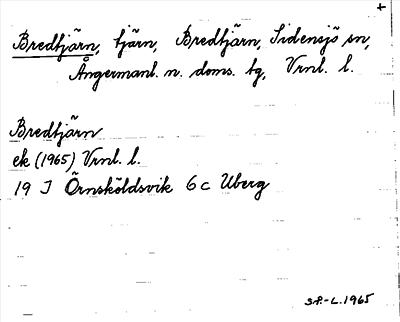 +
Bredtjärn, tjärn, Bredtjärn, Sidensjö sn,
Ångermanl. n. doms. tg, Vrnl. l.
Bredtjärn
ek (1965) Vrnl. l.
19 J Örnsköldsvik 6 c Uberg
S.P.-L. 1965